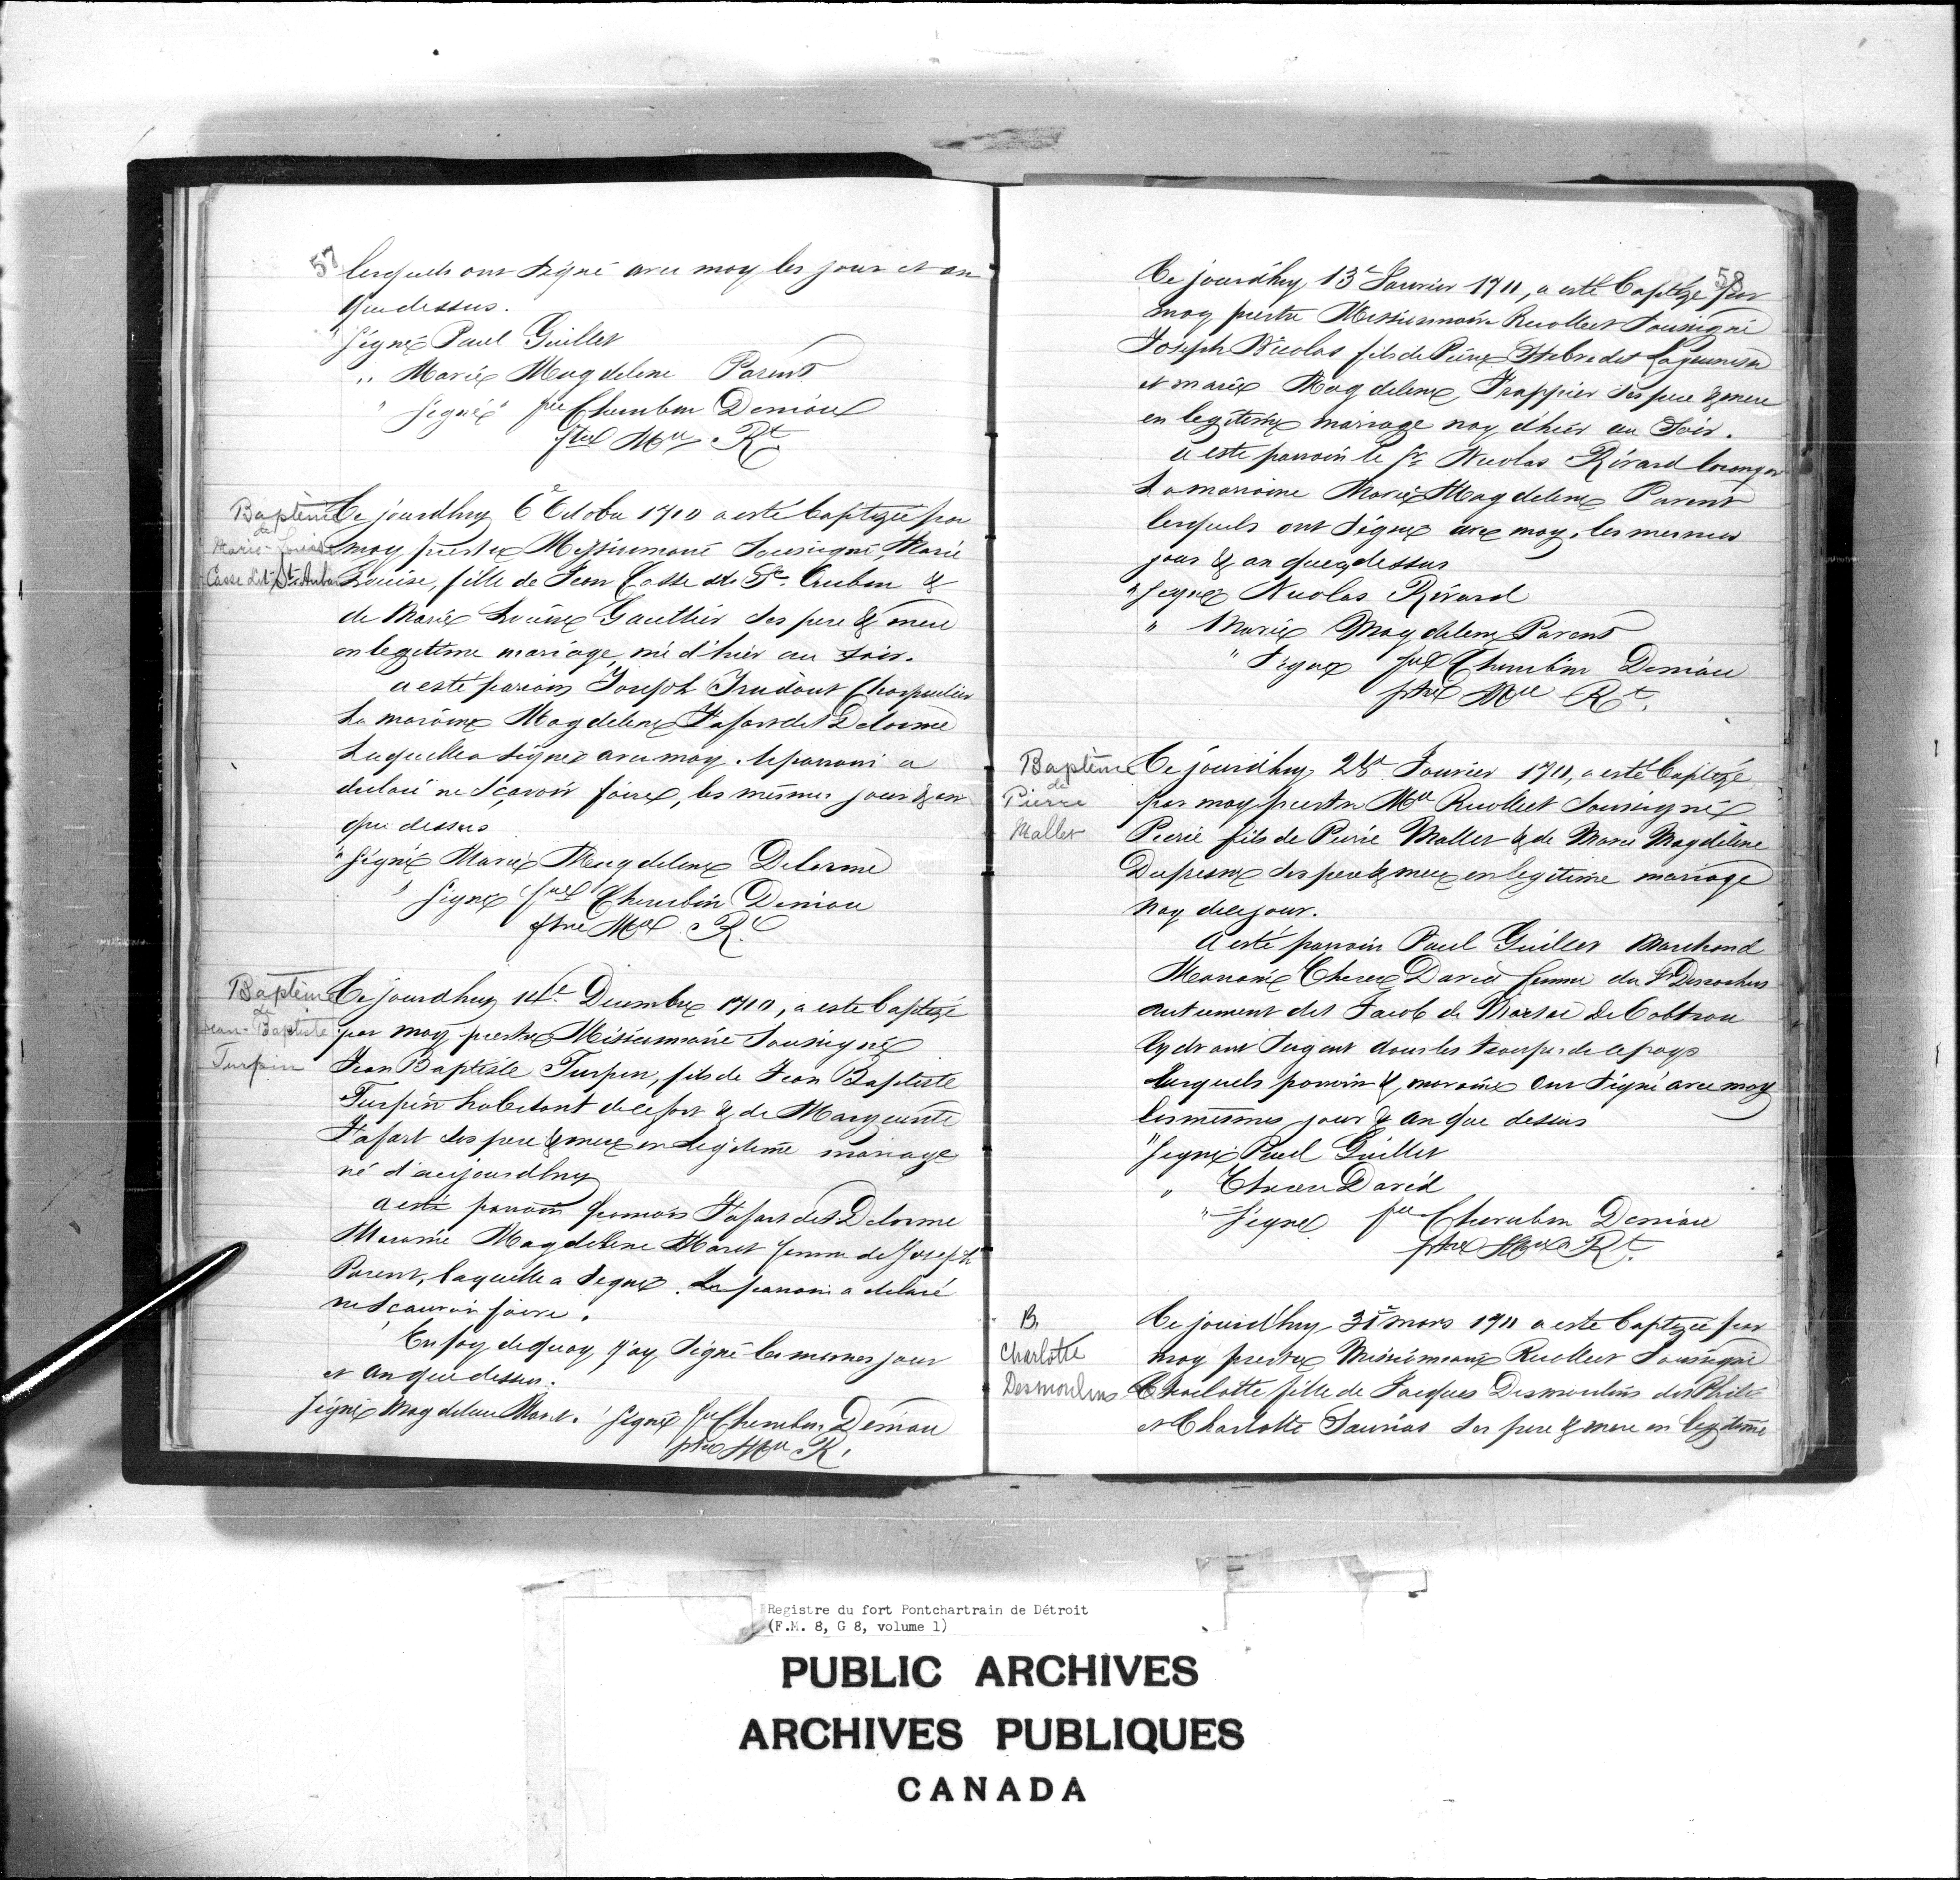 57
lesquels ont signé avec moy les jour et an
que dessus.
" Signé Paul Guillet
" Marie Magdelene Parent
" Signé frere Cherubin Deniau
ptre Mre Rt.
Baptême
de
Marie-Louise
Casse dit St. Aubin
Ce jourdhuy 6e Octobre 1710 a esté baptizée par
moy prestre Missionnaire Sousigné, Marie
Louise, fille de Jean Casse dit St. Aubin &
de Marie Louise Gaultier ses pere & mere
en legitime mariage, né d'hier au soir.
a esté parain Joseph Trudeau Charpentier
La maraine Magdelene Fafart dit Delorme
Laquelle a signé avec moy. le parrain a
declaré ne sçavoir faire, les mesmes jour & an
que dessus
" Signé Marie Magdelene Delorme
" Signé frere Cherubin Deniau
ptre Mre R.
Baptême
de
Jean-Baptiste
Turpin
Ce jourdhuy 14e Decembre 1710, a esté baptizé
par moy prestre Missionnaire Sousigné
Jean Baptiste Turpin, fils de Jean Baptiste
Turpin habitant de ce fort & de Marguerite
Fafart ses pere & mere en legitime mariage
né d'aujourdhuy
a esté parrain francois Fafart dit Delorme
Maraine Magdelene Maret femme de Joseph
Parent, laquelle a signé. Le parrain a declaré
ne sçauoir faire.
En foy de quoy j'ay signé les mesmes jour
et an que dessus.
Signé Magdelene Maret. Signé fre Cherubin Deniau
ptre Mre R.
58
Ce jourd'huy 13e Janvier 1711, a esté baptizé par
moy prestre Missionnaire Recollect Sousigné
Joseph Nicolas fils de Pierre Stebre dit Lajeunesse
et marie Magdelene Frappier ses pere & mere
en legitime mariage nay d'hier au soir.
a esté parrain le Sr. Nicolas Rivard loranger
La marraine Marie Magdelene Parent
lesquels ont signé avec moy, les mesmes
jour & an que dessus
" Signé Nicolas Rivard
" Marie Magdelene Parent
" Signé fre Cherubin Deniau
ptre Mre Rt.
Baptême
de
Pierre
Mallet
Ce jourd'huy 28e Janvier 1711, a esté baptizé
par moy prestre Mre Recollect Sousigné
Pierre fils de Pierre Mallet & de Marie Magdelene
Dufresne ses pere & mere en legitime mariage
nay de ce jour.
A esté parrain Paul Guillet Marchand
Maraine Therese David femme du Sr Desrochers
autrement dit Jacob de Marsac de Cobtrou
Cy dvant Sergent dans les trouppes de ce pays
Lesquels parrain & maraine ont signé avec moy
les mesmes jour & an que dessus
" Signé Paul Guillet
" Therese David
" Signé fre Cherubin Deniau
ptre Mre Rt.
B.
Charlotte
Desmoulins
Ce jourd'huy 31e mars 1711 a esté baptizée par
moy prestre Missionnaire Recollect Sousigné
Charlotte fille de Jacques Desmoulins dit Philis
et Charlotte Sauriat ses pere & mere en legitime
Registre du fort Pontchartrain de Détroit
(F.M. 8, G 8, volume 1)
PUBLIC ARCHIVES
ARCHIVES PUBLIQUES
CANADA